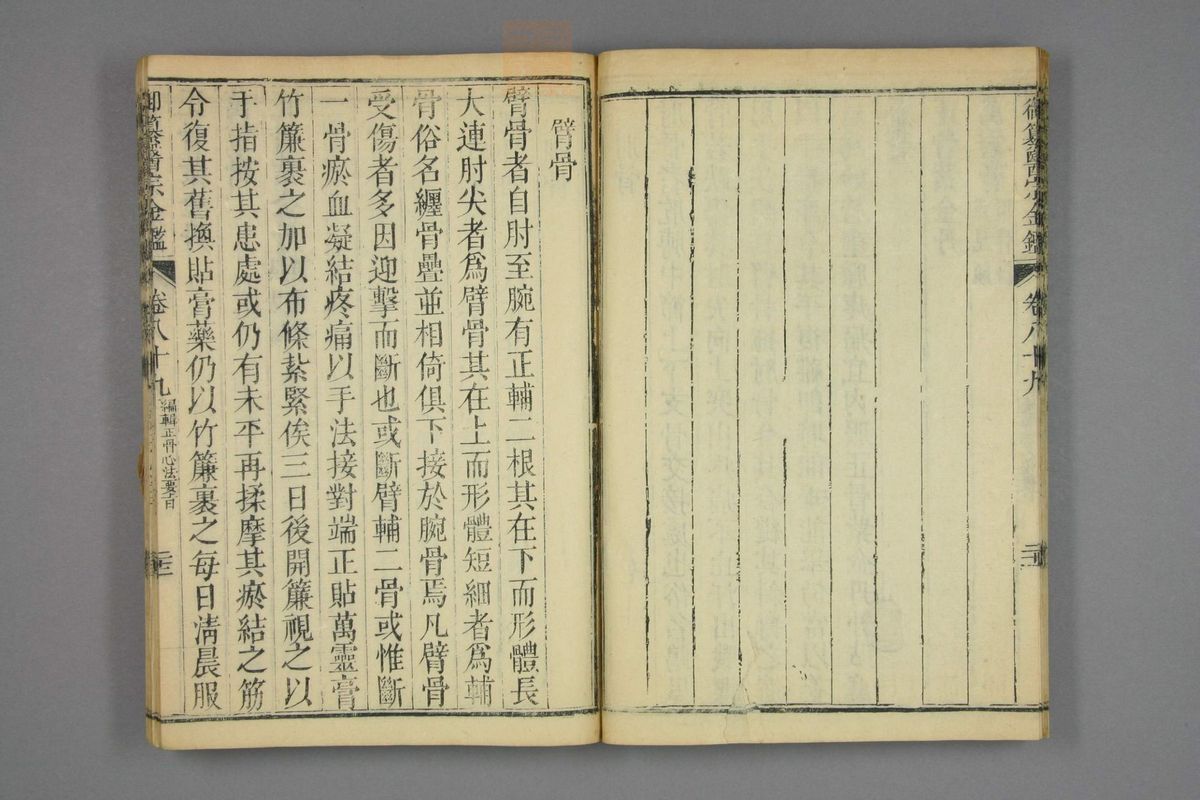 御纂醫宗金鑑 卷八十九
臂骨
臂骨者自肘至腕有正輔二根其在下而形體長
大連肘尖者爲臂骨其在上而形體短細者爲輔
骨俗名纏骨疊並相倚俱下接於腕骨焉凡臂骨
受傷者多因迎擊而斷也或斷臂輔二骨或惟斷
一骨瘀血凝結疼痛以手法接對端正貼萬靈膏
竹簾裹之加以布條紮緊俟三日後開簾視之以
手指按其患處或仍有未平再揉摩其瘀結之筋
令復其舊換貼膏藥仍以竹簾裹之每日清晨服
御纂醫宗金鑑 卷八十九 編輯正骨心法要旨